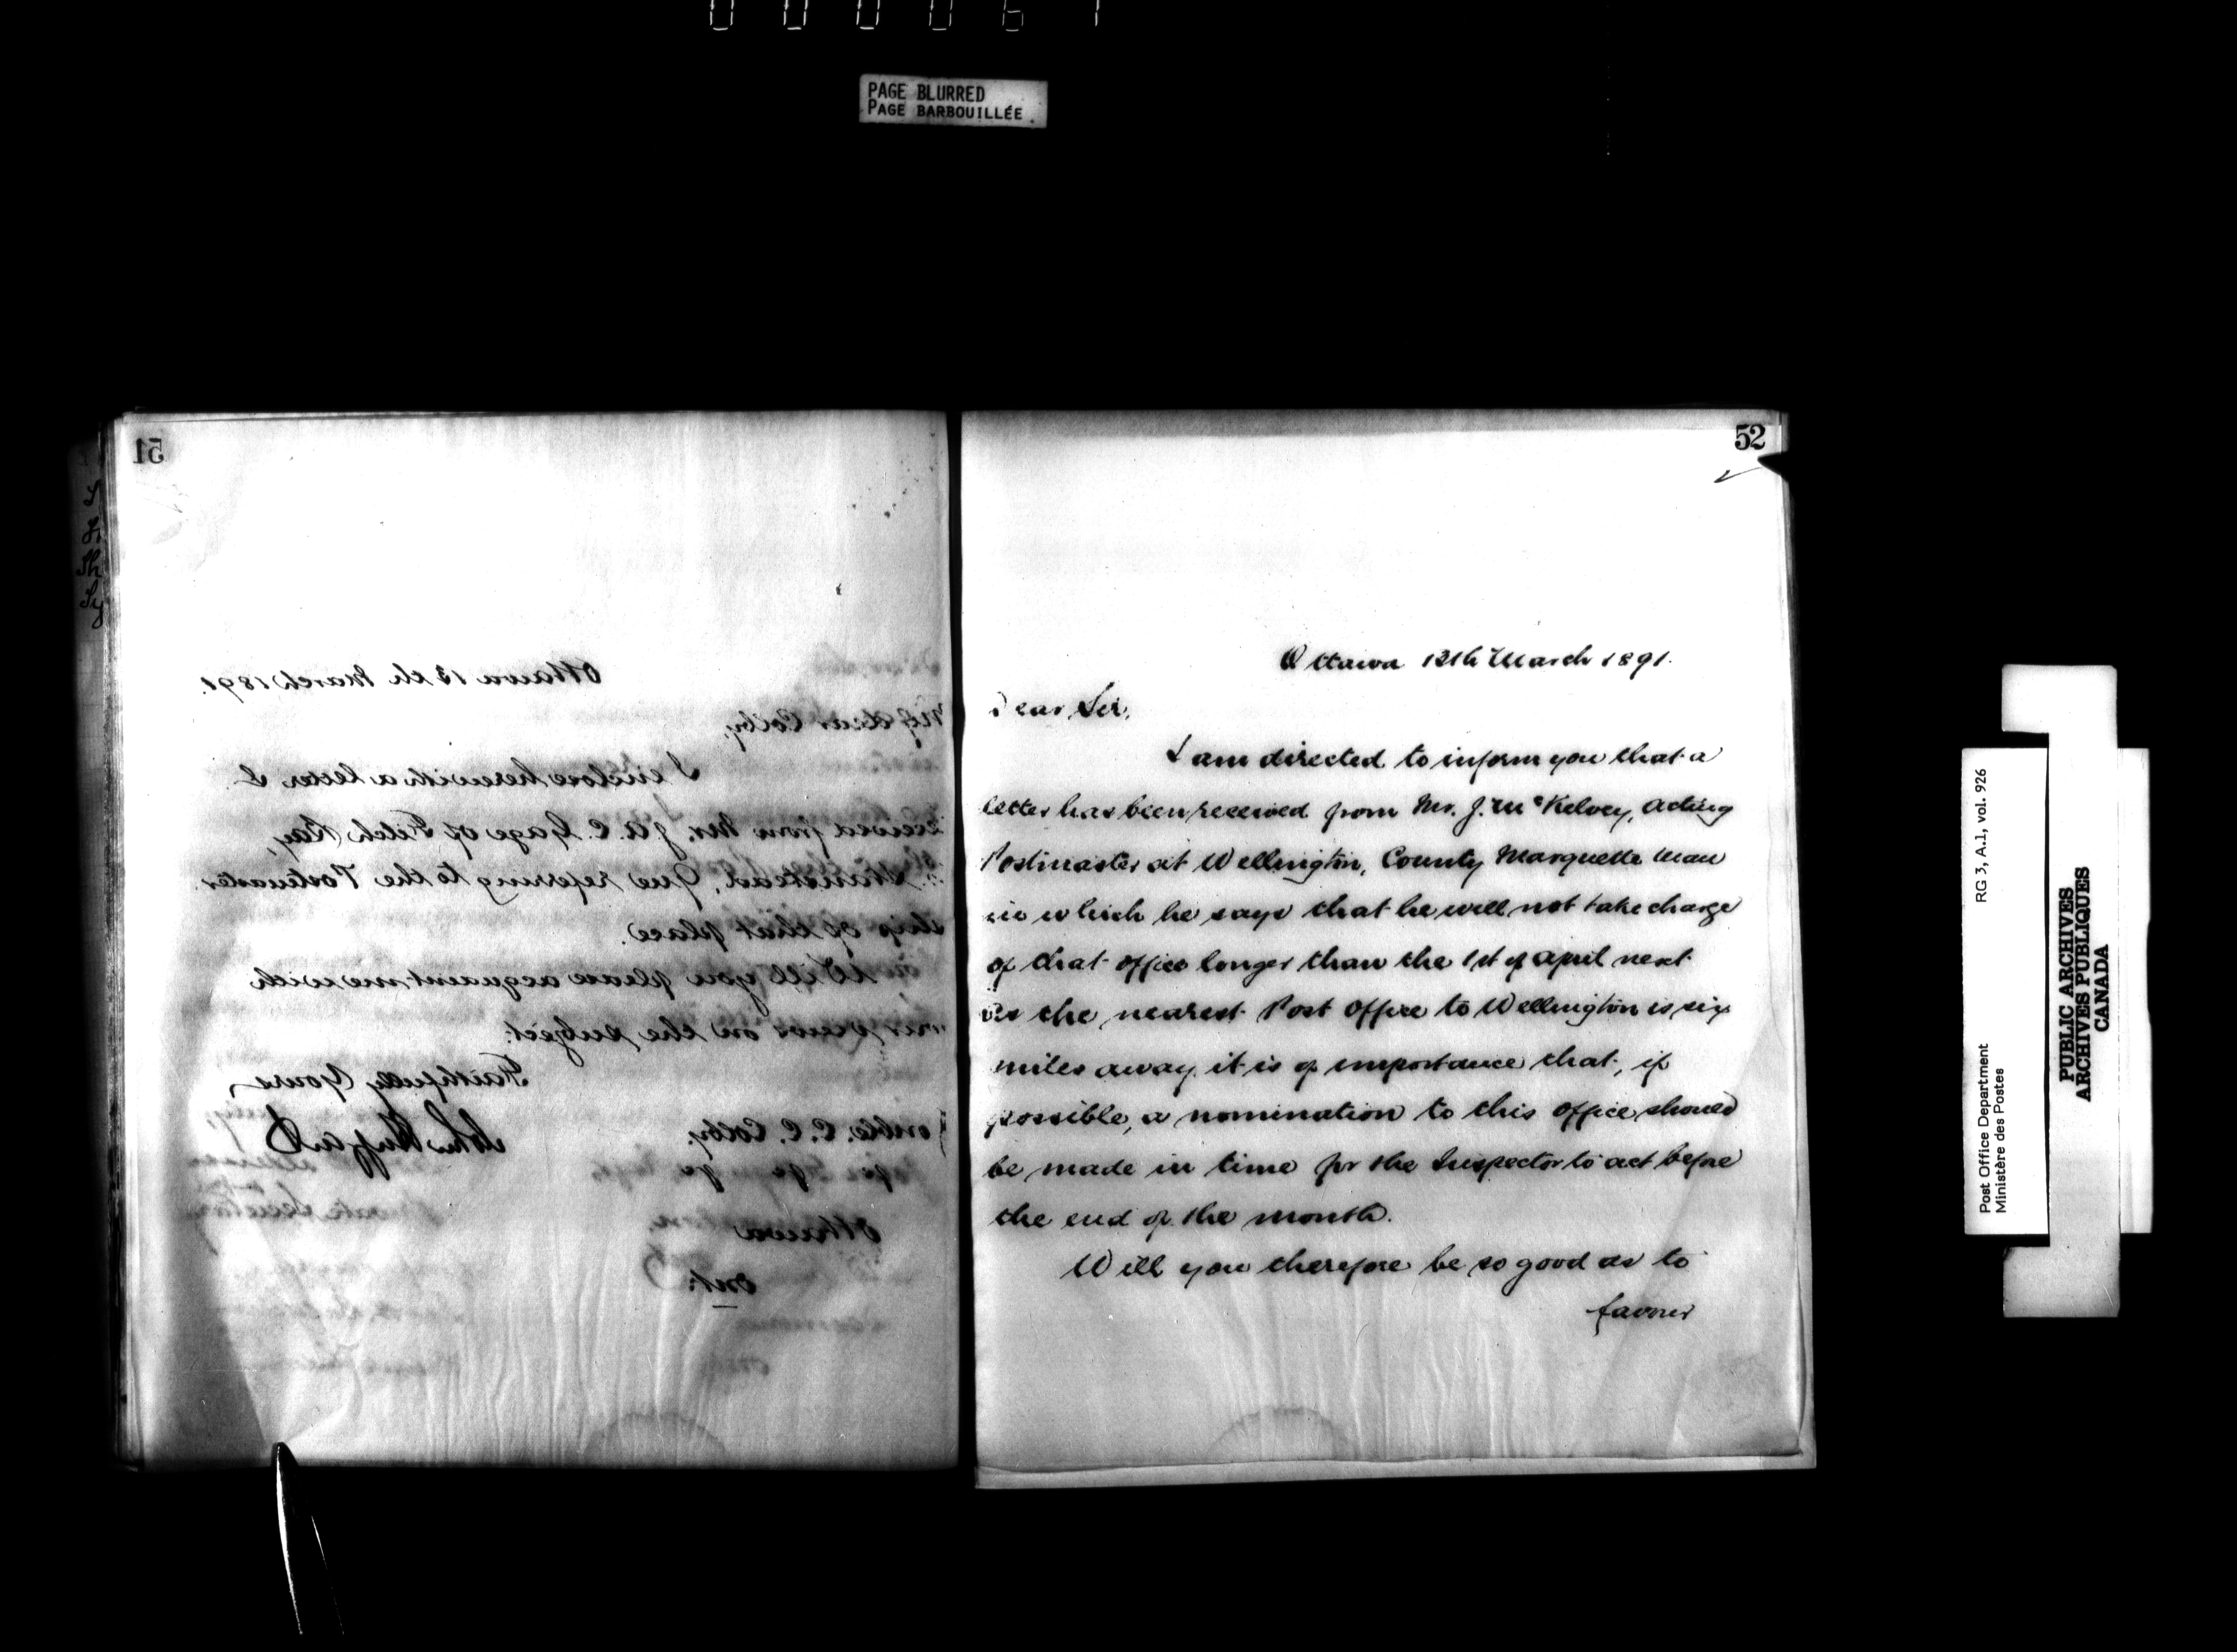 PAGE BLURRED
PAGE BARBOUILLÉE
51
Ottawa 13th March 1891.
My dear Colby,
I enclose herewith a letter I
received from Mr. J. A. C. Gage of Fitch Bay,
Stanstead, Que referring to the Postmaster
ship of that place.
Will you please acquaint me with
your views on the subject.
Faithfully Yours,
John Haggart
Honble. C. C. Colby.
Ottawa
Ont:
52
Ottawa 13th March 1891.
Dear Sir,
I am directed to inform you that a
letter has been received from Mr. J. McKelvey, Acting
Postmaster at Wellington, County Marquette Man
in which he says that he will not take charge
of that office longer than the 1st of April next.
As the nearest Post Office to Wellington is six
miles away it is of importance that, if
possible, a nomination to this office should
be made in time for the Inspector to act before
the end of the month.
Will you therefore be so good as to
favour
Post Office Department
Ministère des Postes
RG 3, A.1, vol. 926
PUBLIC ARCHIVES
ARCHIVES PUBLIQUES
CANADA